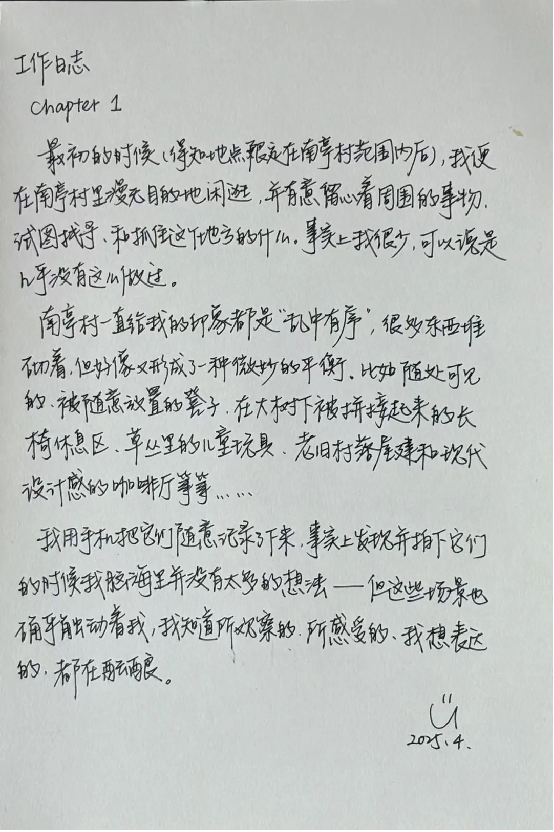 工作日志
Chapter 1
最初的时候(得知地点限定在南亭村范围内后),我便
在南亭村里漫无目的地闲逛,并有意留心着周围的事物,
试图找寻、和抓住这个地方的什么。事实上我很少,可以说是
几乎没有这么做过。
南亭村一直给我的印象都是"乱中有序",很多东西堆
砌着,但好像又形成了一种微妙的平衡。比如随处可见
的、被随意放置的凳子,在大树下被拼接起来的长
椅休息区、草丛里的儿童玩具、老旧村落屋建和现代
设计感的咖啡厅等等……
我用手机把它们随意记录了下来,事实上发现并拍下它们
的时候我脑海里并没有太多的想法——但这些场景也
确乎触动着我,我知道所观察的、所感受的、我想表达
的,都在酝酿。
2025.4.